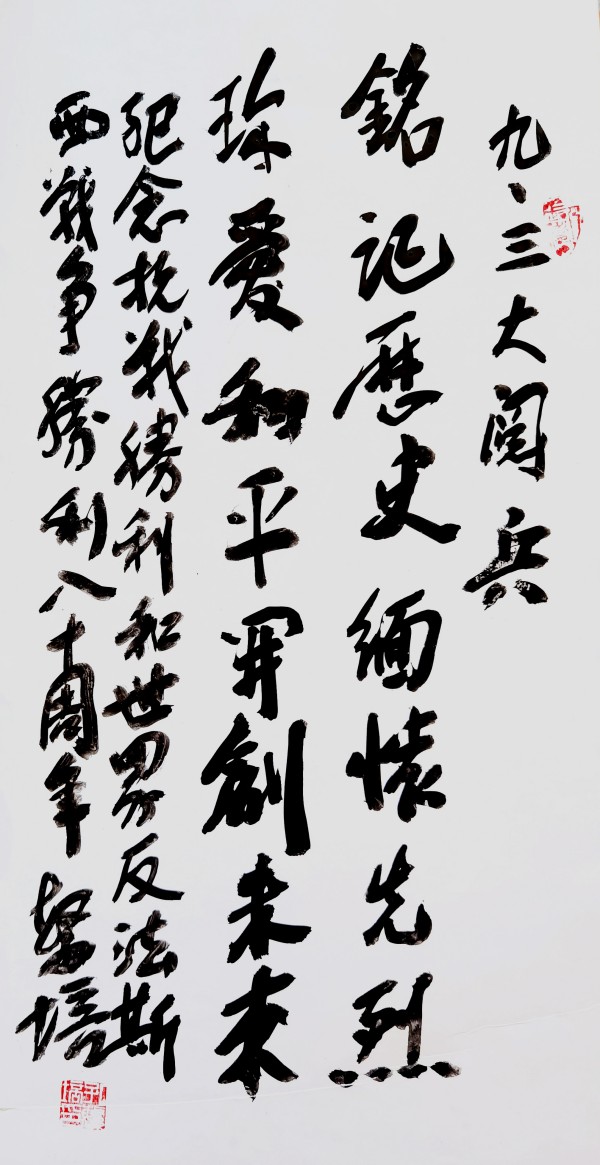 九、三大阅兵
銘记歷史缅懷先烈
珍愛和平開創未来
纪念抗战勝利和世界反法斯
西战争勝利八十周年